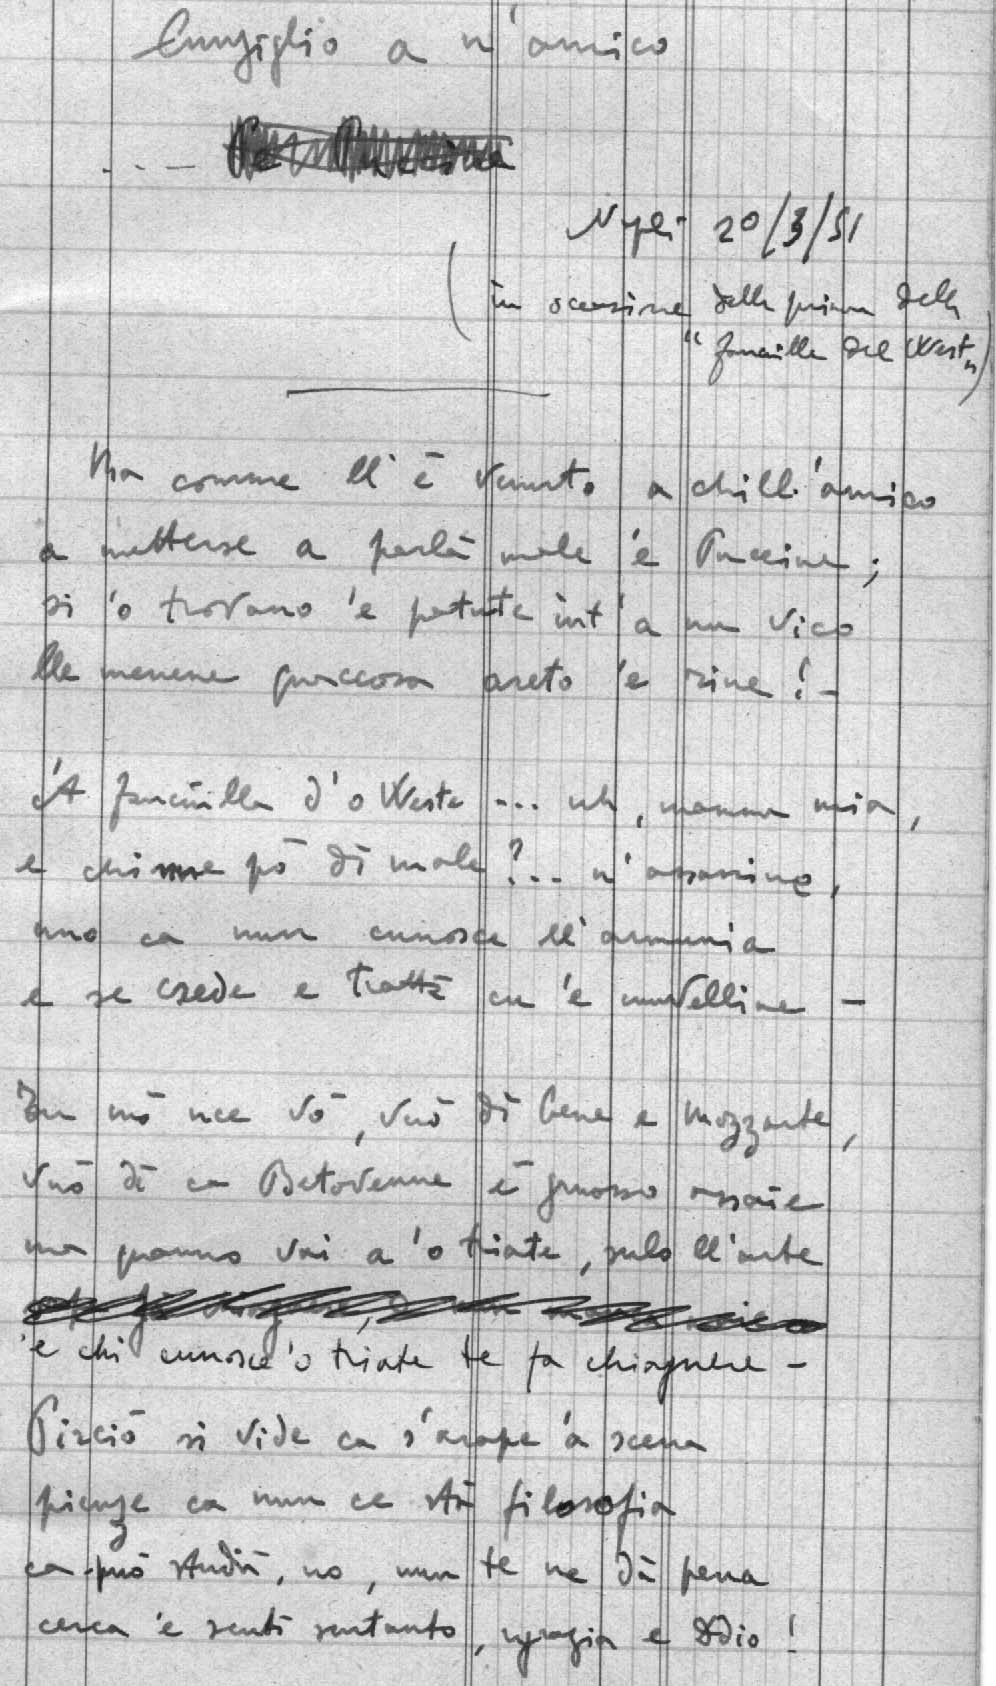 Cunziglio a n'amico
Napoli 20/3/51
(in occasione della prima della
"fanciulla del West")
Ma comme ll'è venuto a chill'amico
a metterse a parlà male 'e Puccine;
si 'o trovano 'e patute int'a nu vico
lle menene quaccosa areto 'e rine! -
'A fanciulla d''o Weste ... uh, mamma mia,
e chi ne pò dì male?... n'assassine,
uno ca nun cunosce ll'armunia
e se crede e trattà cu 'e mandulline -
Tu mò nce vò, vuò dì bene e Mozzarte,
vuò dì ca Betovenne è gruosso assaie
ma quanno vai a 'o triate, sulo ll'arte
'e chi cunosce 'o triate te fa chiagnere -
Pirciò si vide ca s'arape 'a scena
pienze ca nun ce stà filosofia
ca può studià, no, nun te ne dà pena
cerca 'e sentì suntanto, e Ddio!